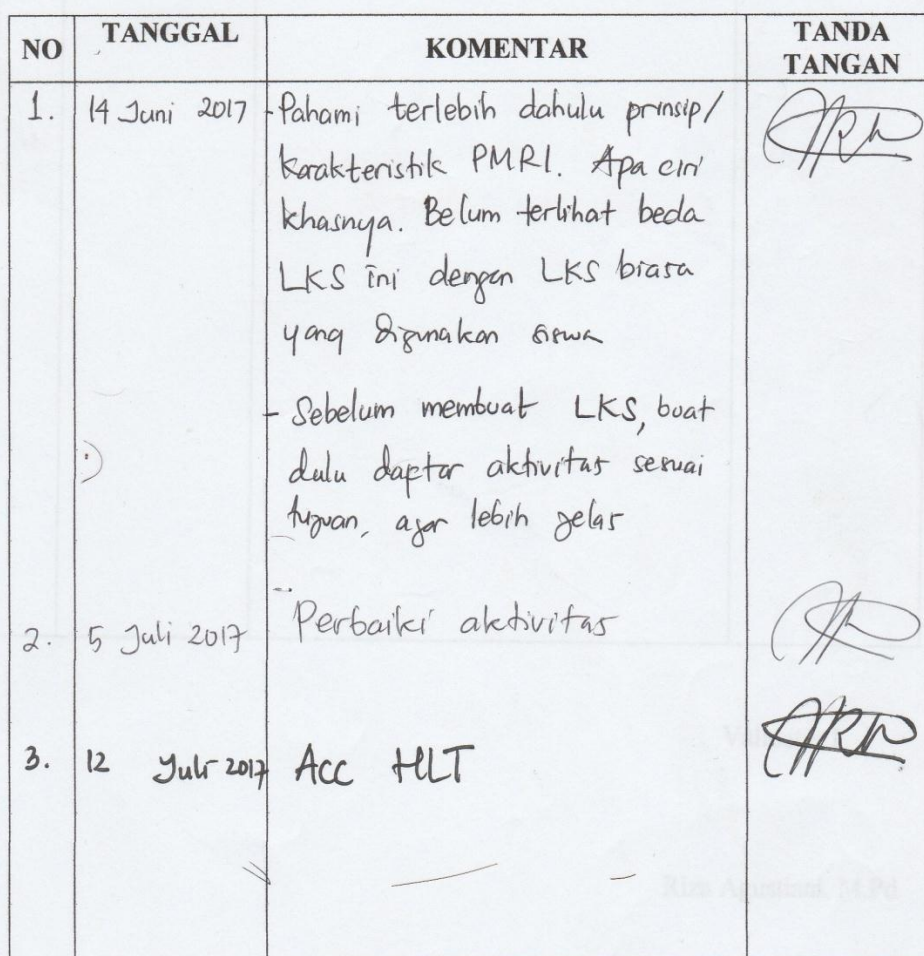 NO TANGGAL KOMENTAR TANDA TANGAN
1. 14 Juni 2017 - Pahami terlebih dahulu prinsip/
karakteristik PMRI. Apa ciri
khasnya. Belum terlihat beda
LKS ini dengan LKS biasa
yang digunakan siswa
- Sebelum membuat LKS, buat
dulu daftar aktivitas sesuai
tujuan, agar lebih jelas
2. 5 Juli 2017 Perbaiki aktivitas
3. 12 Juli 2017 Acc HLT
Riza Agustiani, M.Pd